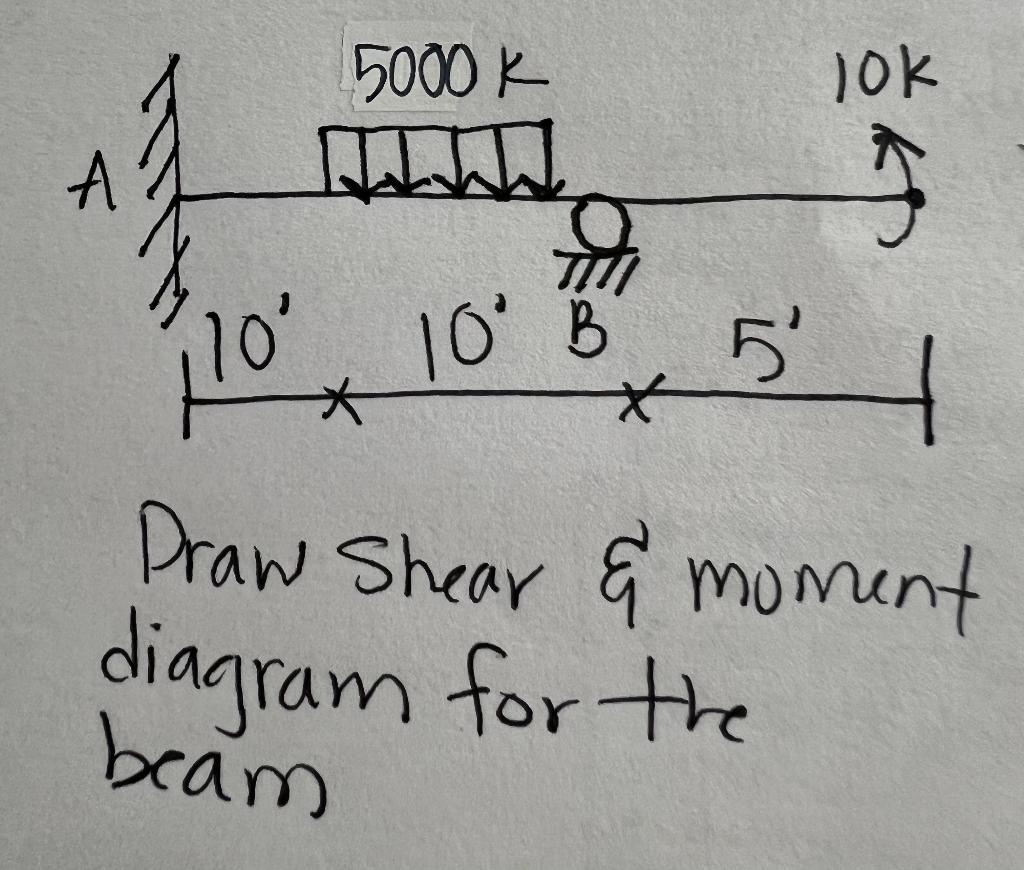 5000 K
10K
A
10' 10' B 5'
Draw Shear & moment
diagram for the
beam